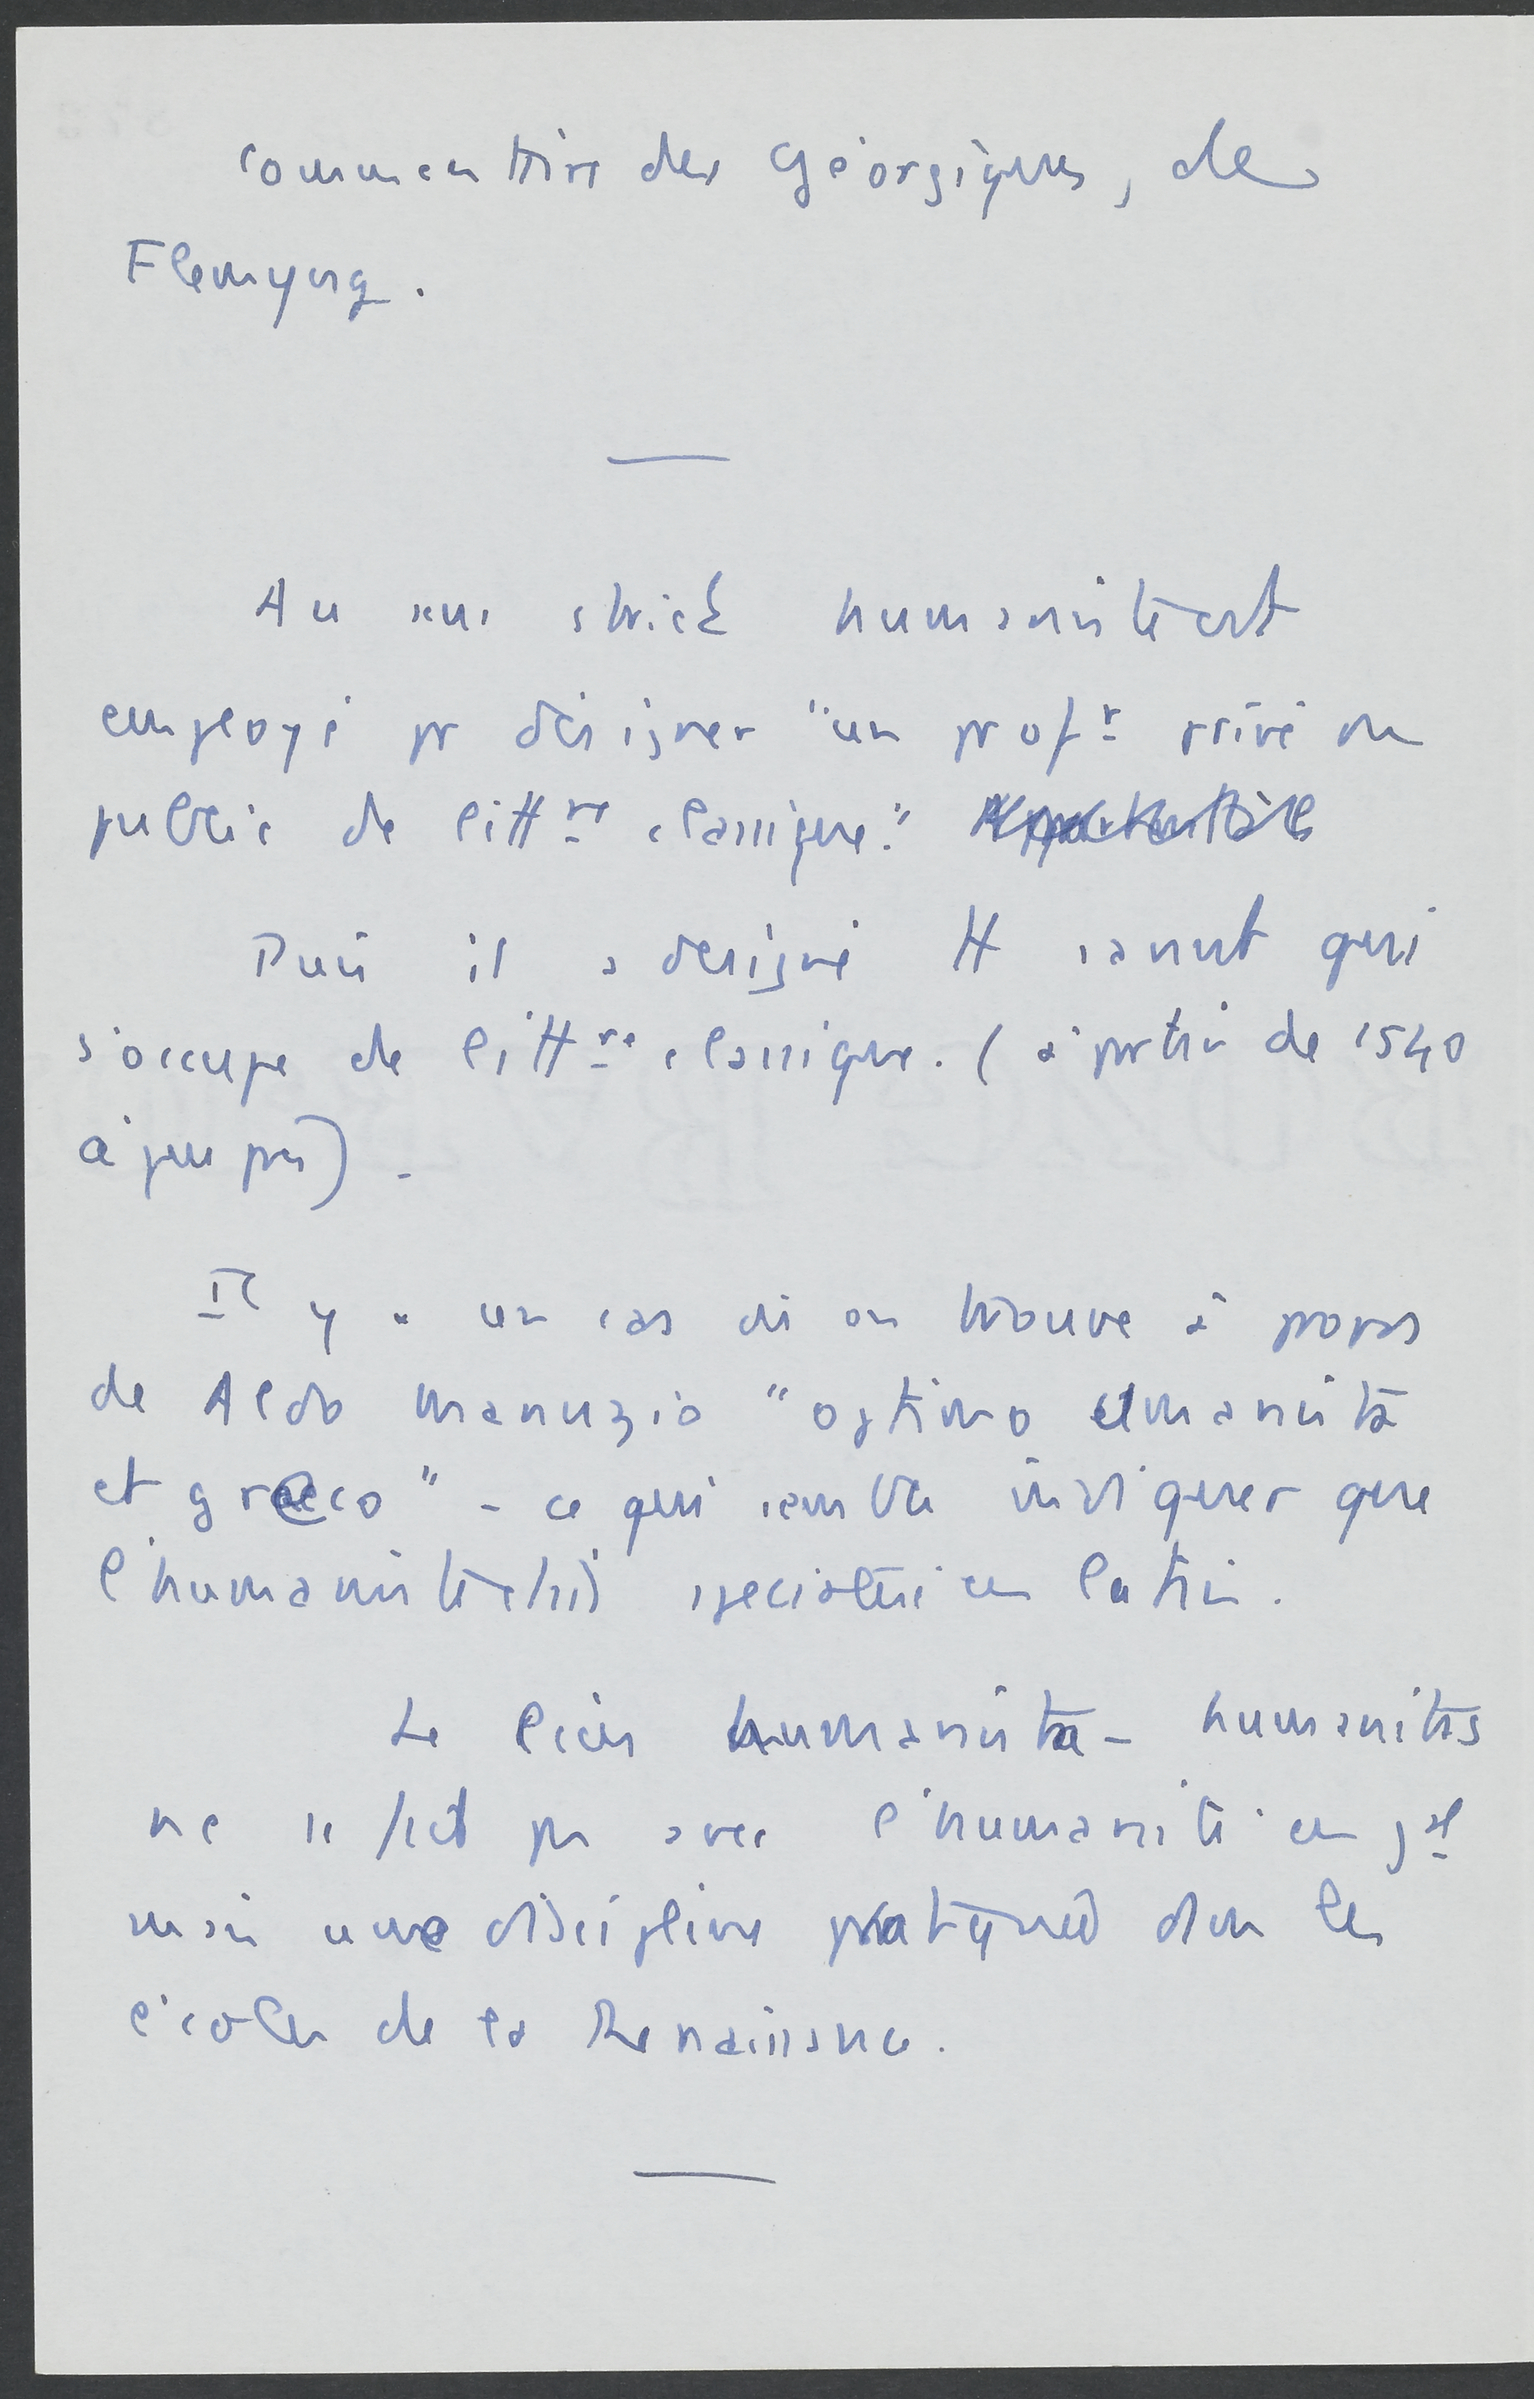 commentaire des Géorgiques, de
Flemyng.
Au sens strict humaniste est
employé pr désigner "un profr privé ou
public de littre classique."
Puis il a désigné tt savant qui
s'occupe de littre classique. (à partir de 1540
à peu près).
Il y a un cas où on trouve à propos
de Aldo Manuzio "optimo umanista
et graeco" - ce qui semble indiquer que
l'humaniste était spécialisé en latin.
Le lien humanista - humanitas
ne se fait pas avec l'humanité en gal
mais une discipline pratiquée dans les
écoles de la Renaissance.